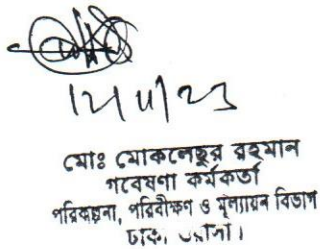 12/11/23
মোঃ মোকলেছুর রহমান
গবেষণা কর্মকর্তা
পরিকল্পনা, পরিবীক্ষণ ও মূল্যায়ন বিভাগ
ঢাকা,